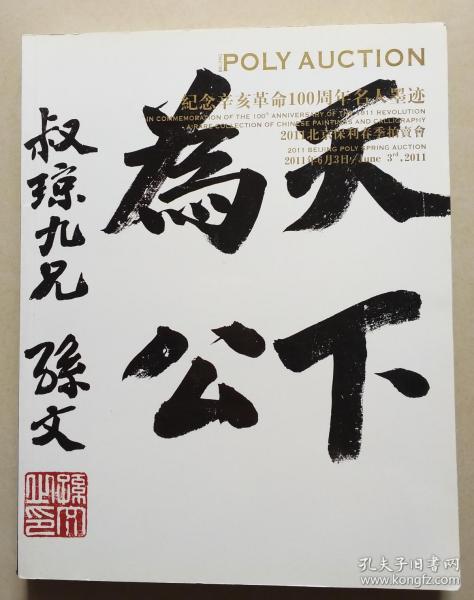 POLY AUCTION
紀念辛亥革命100周年名人墨迹
IN COMMEMORATION OF THE 100th ANNIVERSARY OF THE 1911 REVOLUTION
A RARE COLLECTION OF CHINESE PAINTINGS AND CALLIGRAPHY
2011北京保利春季拍賣會
2011 BEIJING POLY SPRING AUCTION
2011年6月3日/June 3rd, 2011
天下
為公
叔瓊九兄
孫文
孫文之印
孔夫子旧书网
www.kongfz.com